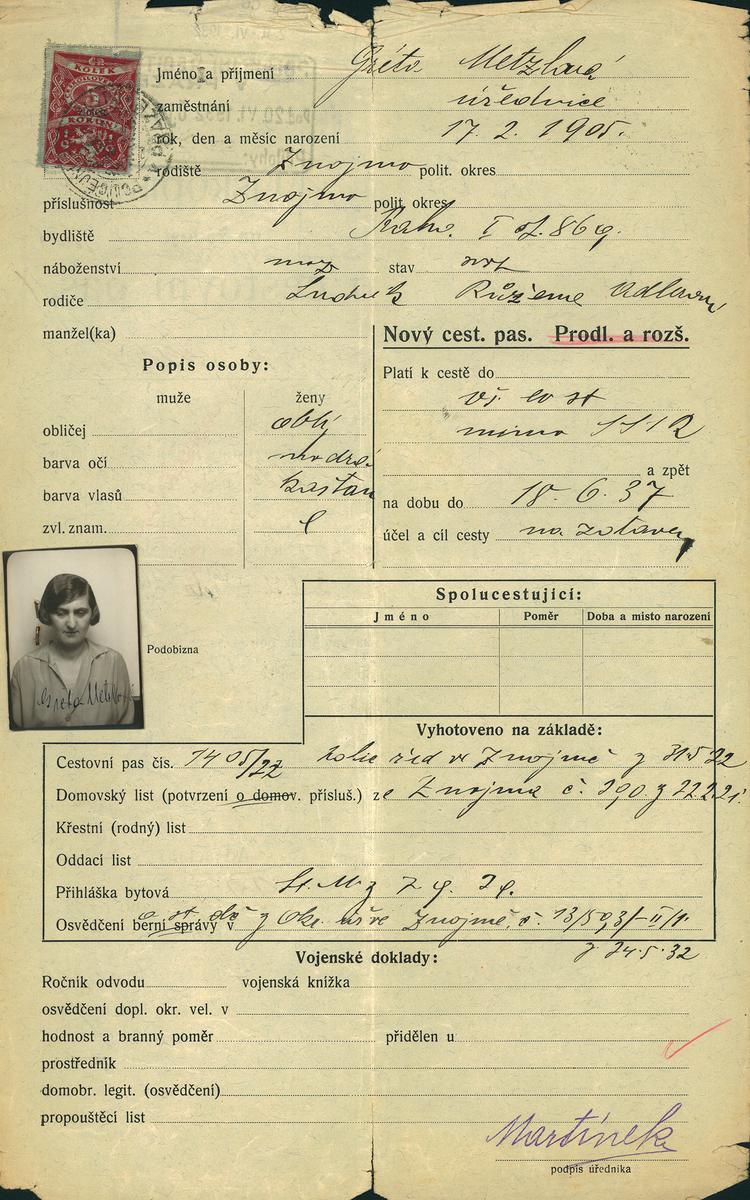 KOLEK
5
Jméno a příjmení Gréta Metzlová
zaměstnání úřednice
rok, den a měsíc narození 17. 2. 1905.
rodiště Znojmo polit. okres
příslušnost Znojmo polit. okres
bydliště Praha I čp. 869.
náboženství moj stav svob
rodiče Ludvík Růžena Adlerová
manžel(ka)
Nový cest. pas. Prodl. a rozš.
Popis osoby:
muže ženy
obličej oblý
barva očí modré
barva vlasů kaštan
zvl. znam.
Platí k cestě do
vš. ev st
mimo SSSR
a zpět
na dobu do 18. 6. 37
účel a cíl cesty na zotaven
Podobizna
Greta Metzlová
Spolucestující:
Jméno Poměr Doba a místo narození
Vyhotoveno na základě:
Cestovní pas čís. 1405/22 polic řed v Znojmě z 31.5 22
Domovský list (potvrzení o domov. přísluš.) ze Znojma č. 290. z 22.2.21.
Křestní (rodný) list
Oddací list
Přihláška bytová
Osvědčení berní správy v Znojmě, č. 13/503/-II/1.
z 24.5.32
Vojenské doklady:
Ročník odvodu vojenská knížka
osvědčení dopl. okr. vel. v
hodnost a branný poměr přidělen u
prostředník
domobr. legit. (osvědčení)
propouštěcí list
Martínek
podpis úředníka